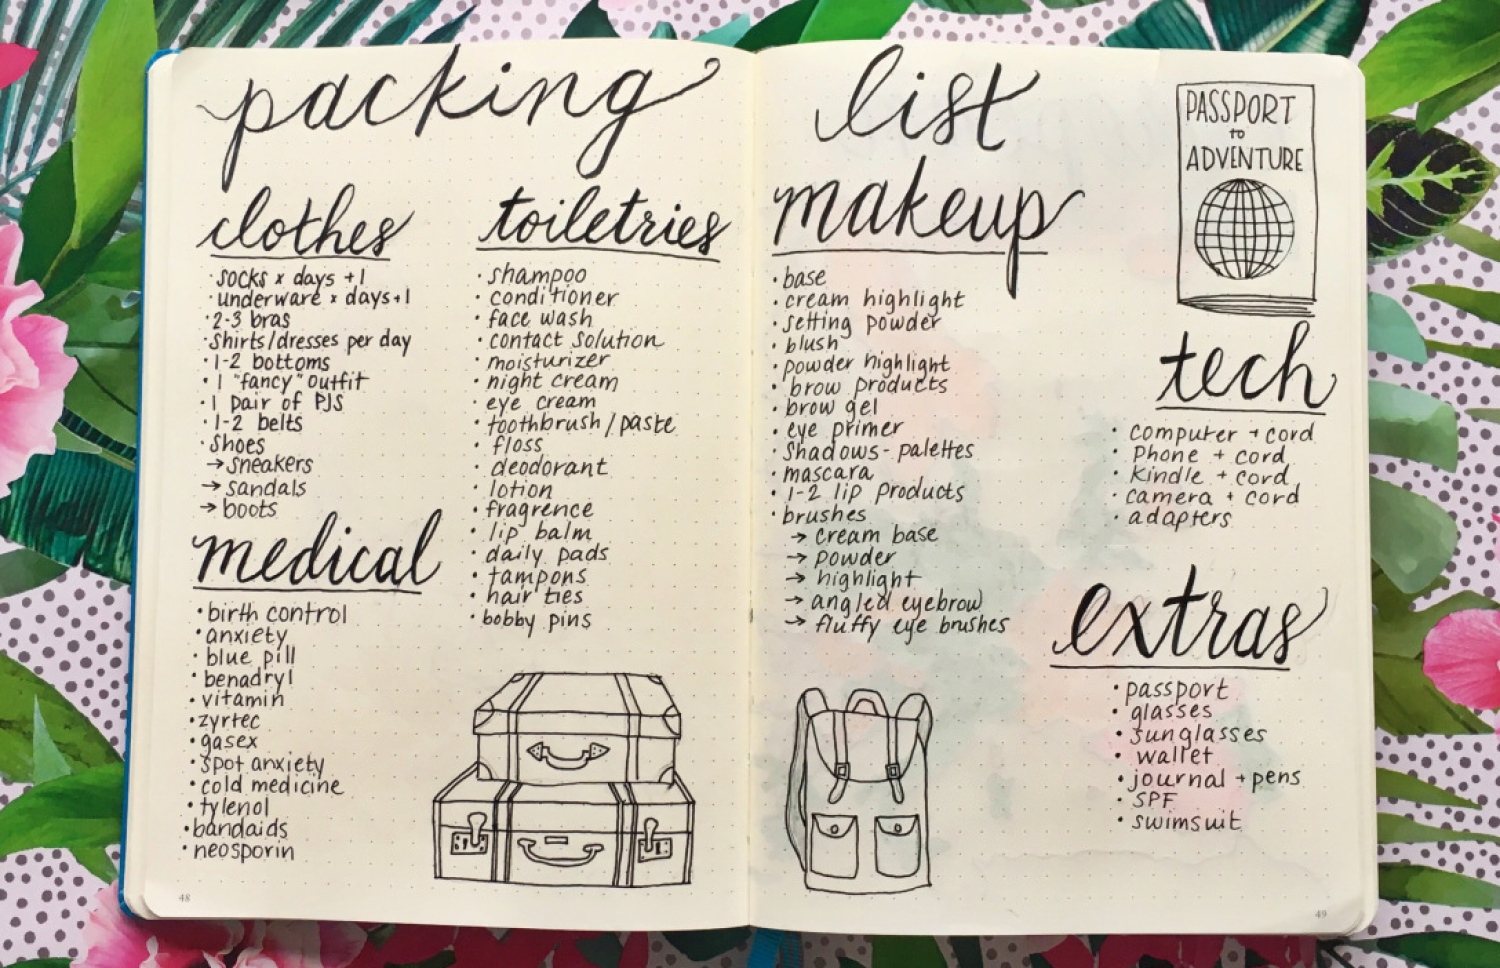 packing
clothes
socks x days +1
underware x days+1
2-3 bras
shirts/dresses per day
1-2 bottoms
1 "fancy" outfit
1 pair of PJS
1-2 belts
shoes
→ sneakers
→ sandals
→ boots
medical
birth control
anxiety
blue pill
benadryl
vitamin
zyrtec
gasex
spot anxiety
cold medicine
tylenol
bandaids
neosporin
48
toiletries
shampoo
conditioner
face wash
contact solution
moisturizer
night cream
eye cream
toothbrush/paste
floss
deodorant
lotion
fragrence
lip balm
daily pads
tampons
hair ties
bobby pins
list
makeup
base
cream highlight
setting powder
blush
powder highlight
brow products
brow gel
eye primer
shadows-palettes
mascara
1-2 lip products
brushes
→ cream base
→ powder
→ highlight
→ angled eyebrow
→ fluffy eye brushes
PASSPORT
to
ADVENTURE
tech
computer + cord
phone + cord
kindle + cord
camera + cord
adapters
extras
passport
glasses
sunglasses
wallet
journal + pens
SPF
swimsuit
49